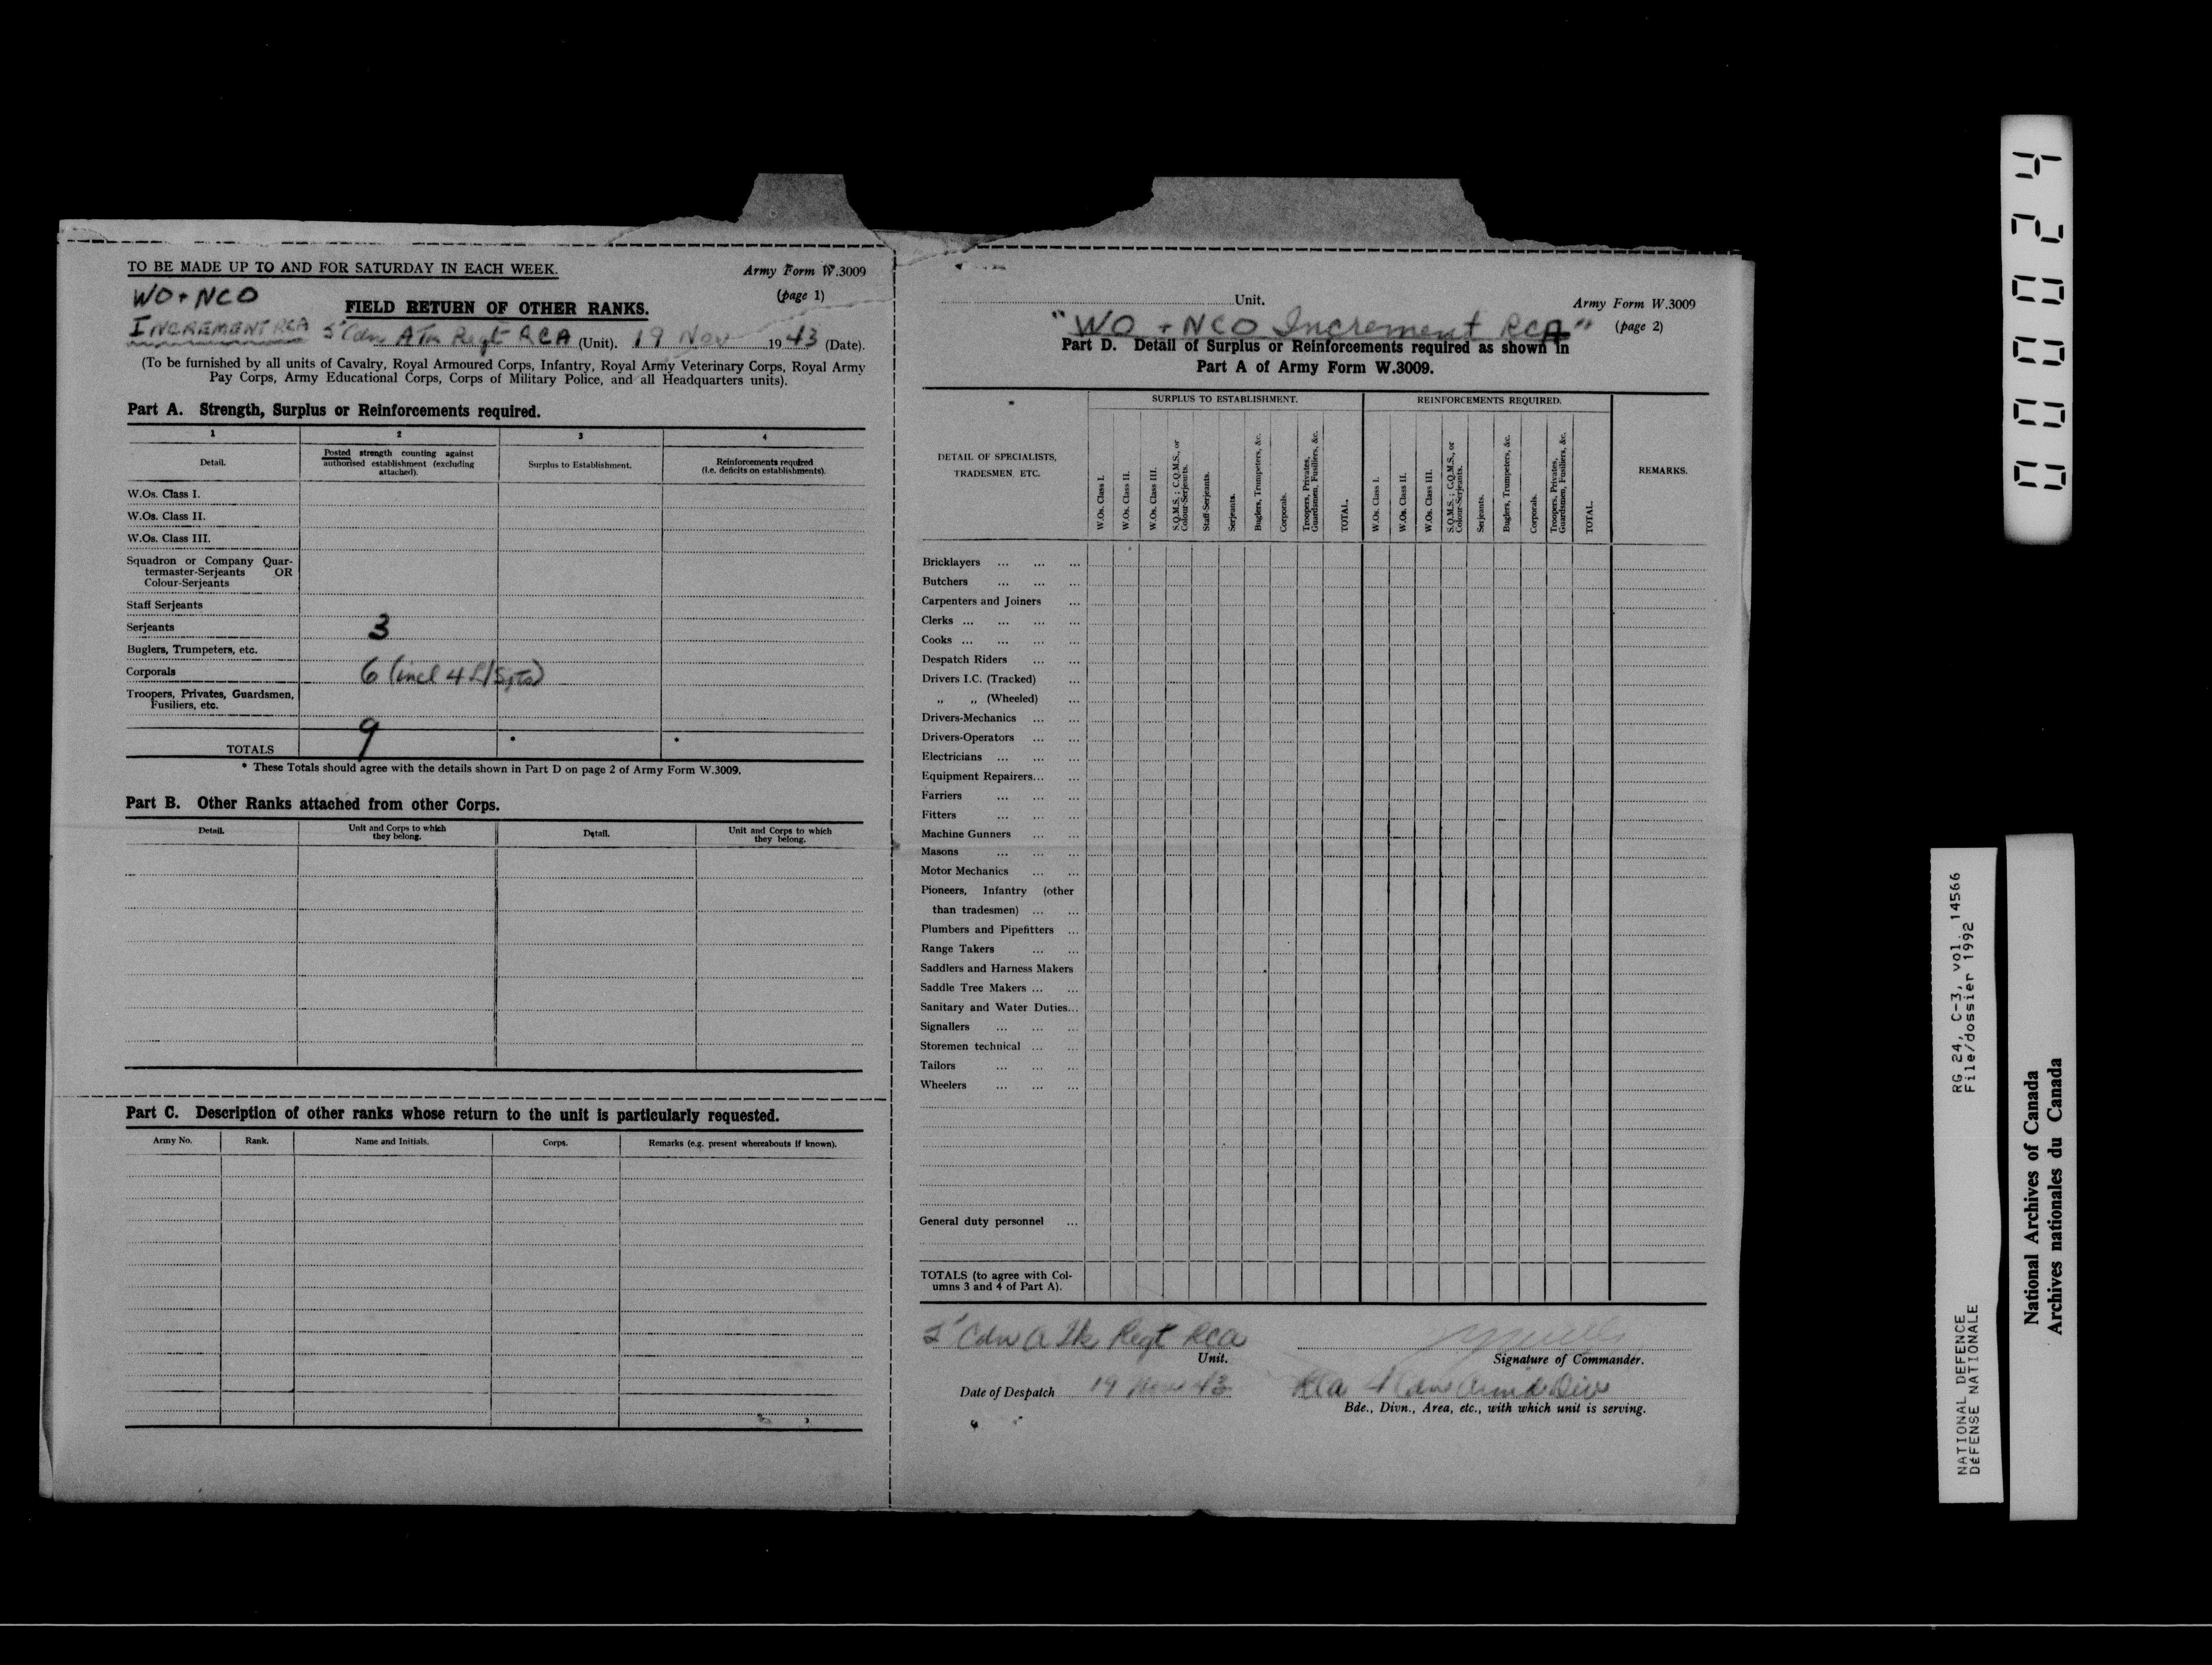 TO BE MADE UP TO AND FOR SATURDAY IN EACH WEEK.
Army Form W.3009
(page 1)
WO + NCO
FIELD RETURN OF OTHER RANKS.
INCREMENT RCA 5 Cdn ATk Regt RCA (Unit). 19 Nov 1943 (Date).
(To be furnished by all units of Cavalry, Royal Armoured Corps, Infantry, Royal Army Veterinary Corps, Royal Army
Pay Corps, Army Educational Corps, Corps of Military Police, and all Headquarters units).
Part A. Strength, Surplus or Reinforcements required.
1 2 3 4
Detail.
Posted strength counting against
authorised establishment (excluding
attached).
Surplus to Establishment.
Reinforcements required
(i.e. deficits on establishments).
W.Os. Class I.
W.Os. Class II.
W.Os. Class III.
Squadron or Company Quar-
termaster-Serjeants OR
Colour-Serjeants
Staff Serjeants
Serjeants 3
Buglers, Trumpeters, etc.
Corporals 6 (incl 4 L/Sgts)
Troopers, Privates, Guardsmen,
Fusiliers, etc.
TOTALS 9 * *
* These Totals should agree with the details shown in Part D on page 2 of Army Form W.3009.
Part B. Other Ranks attached from other Corps.
Detail.
Unit and Corps to which
they belong.
Detail.
Unit and Corps to which
they belong.
Part C. Description of other ranks whose return to the unit is particularly requested.
Army No. Rank. Name and Initials. Corps. Remarks (e.g. present whereabouts if known).
Unit.
Army Form W.3009
(page 2)
"WO + NCO Increment RCA"
Part D. Detail of Surplus or Reinforcements required as shown in
Part A of Army Form W.3009.
SURPLUS TO ESTABLISHMENT.
REINFORCEMENTS REQUIRED.
DETAIL OF SPECIALISTS,
TRADESMEN, ETC.
W.Os. Class I.
W.Os. Class II.
W.Os. Class III.
S.Q.M.S.; C.Q.M.S., or
Colour-Serjeants.
Staff-Serjeants.
Serjeants.
Buglers, Trumpeters, &c.
Corporals.
Troopers, Privates,
Guardsmen, Fusiliers, &c.
TOTAL.
W.Os. Class I.
W.Os. Class II.
W.Os. Class III.
S.Q.M.S.; C.Q.M.S., or
Colour-Serjeants.
Serjeants.
Buglers, Trumpeters, &c.
Corporals.
Troopers, Privates,
Guardsmen, Fusiliers, &c.
TOTAL.
REMARKS.
Bricklayers ... ... ...
Butchers ... ... ...
Carpenters and Joiners ...
Clerks ... ... ... ...
Cooks ... ... ... ...
Despatch Riders ... ...
Drivers I.C. (Tracked) ...
„ „ (Wheeled) ...
Drivers-Mechanics ... ...
Drivers-Operators ... ...
Electricians ... ... ...
Equipment Repairers... ...
Farriers ... ... ...
Fitters ... ... ...
Machine Gunners ... ...
Masons ... ... ...
Motor Mechanics ... ...
Pioneers, Infantry (other
than tradesmen) ... ...
Plumbers and Pipefitters ...
Range Takers ... ...
Saddlers and Harness Makers
Saddle Tree Makers ... ...
Sanitary and Water Duties...
Signallers ... ... ...
Storemen technical ... ...
Tailors ... ... ...
Wheelers ... ... ...
General duty personnel ...
TOTALS (to agree with Col-
umns 3 and 4 of Part A).
5 Cdn A Tk Regt RCA
Unit.
Signature of Commander.
Date of Despatch 19 Nov 43
RCA 4 Cdn Armd Div
Bde., Divn., Area, etc., with which unit is serving.
000024
RG 24, C-3, vol. 14566
File/dossier 1992
NATIONAL DEFENCE
DÉFENSE NATIONALE
National Archives of Canada
Archives nationales du Canada